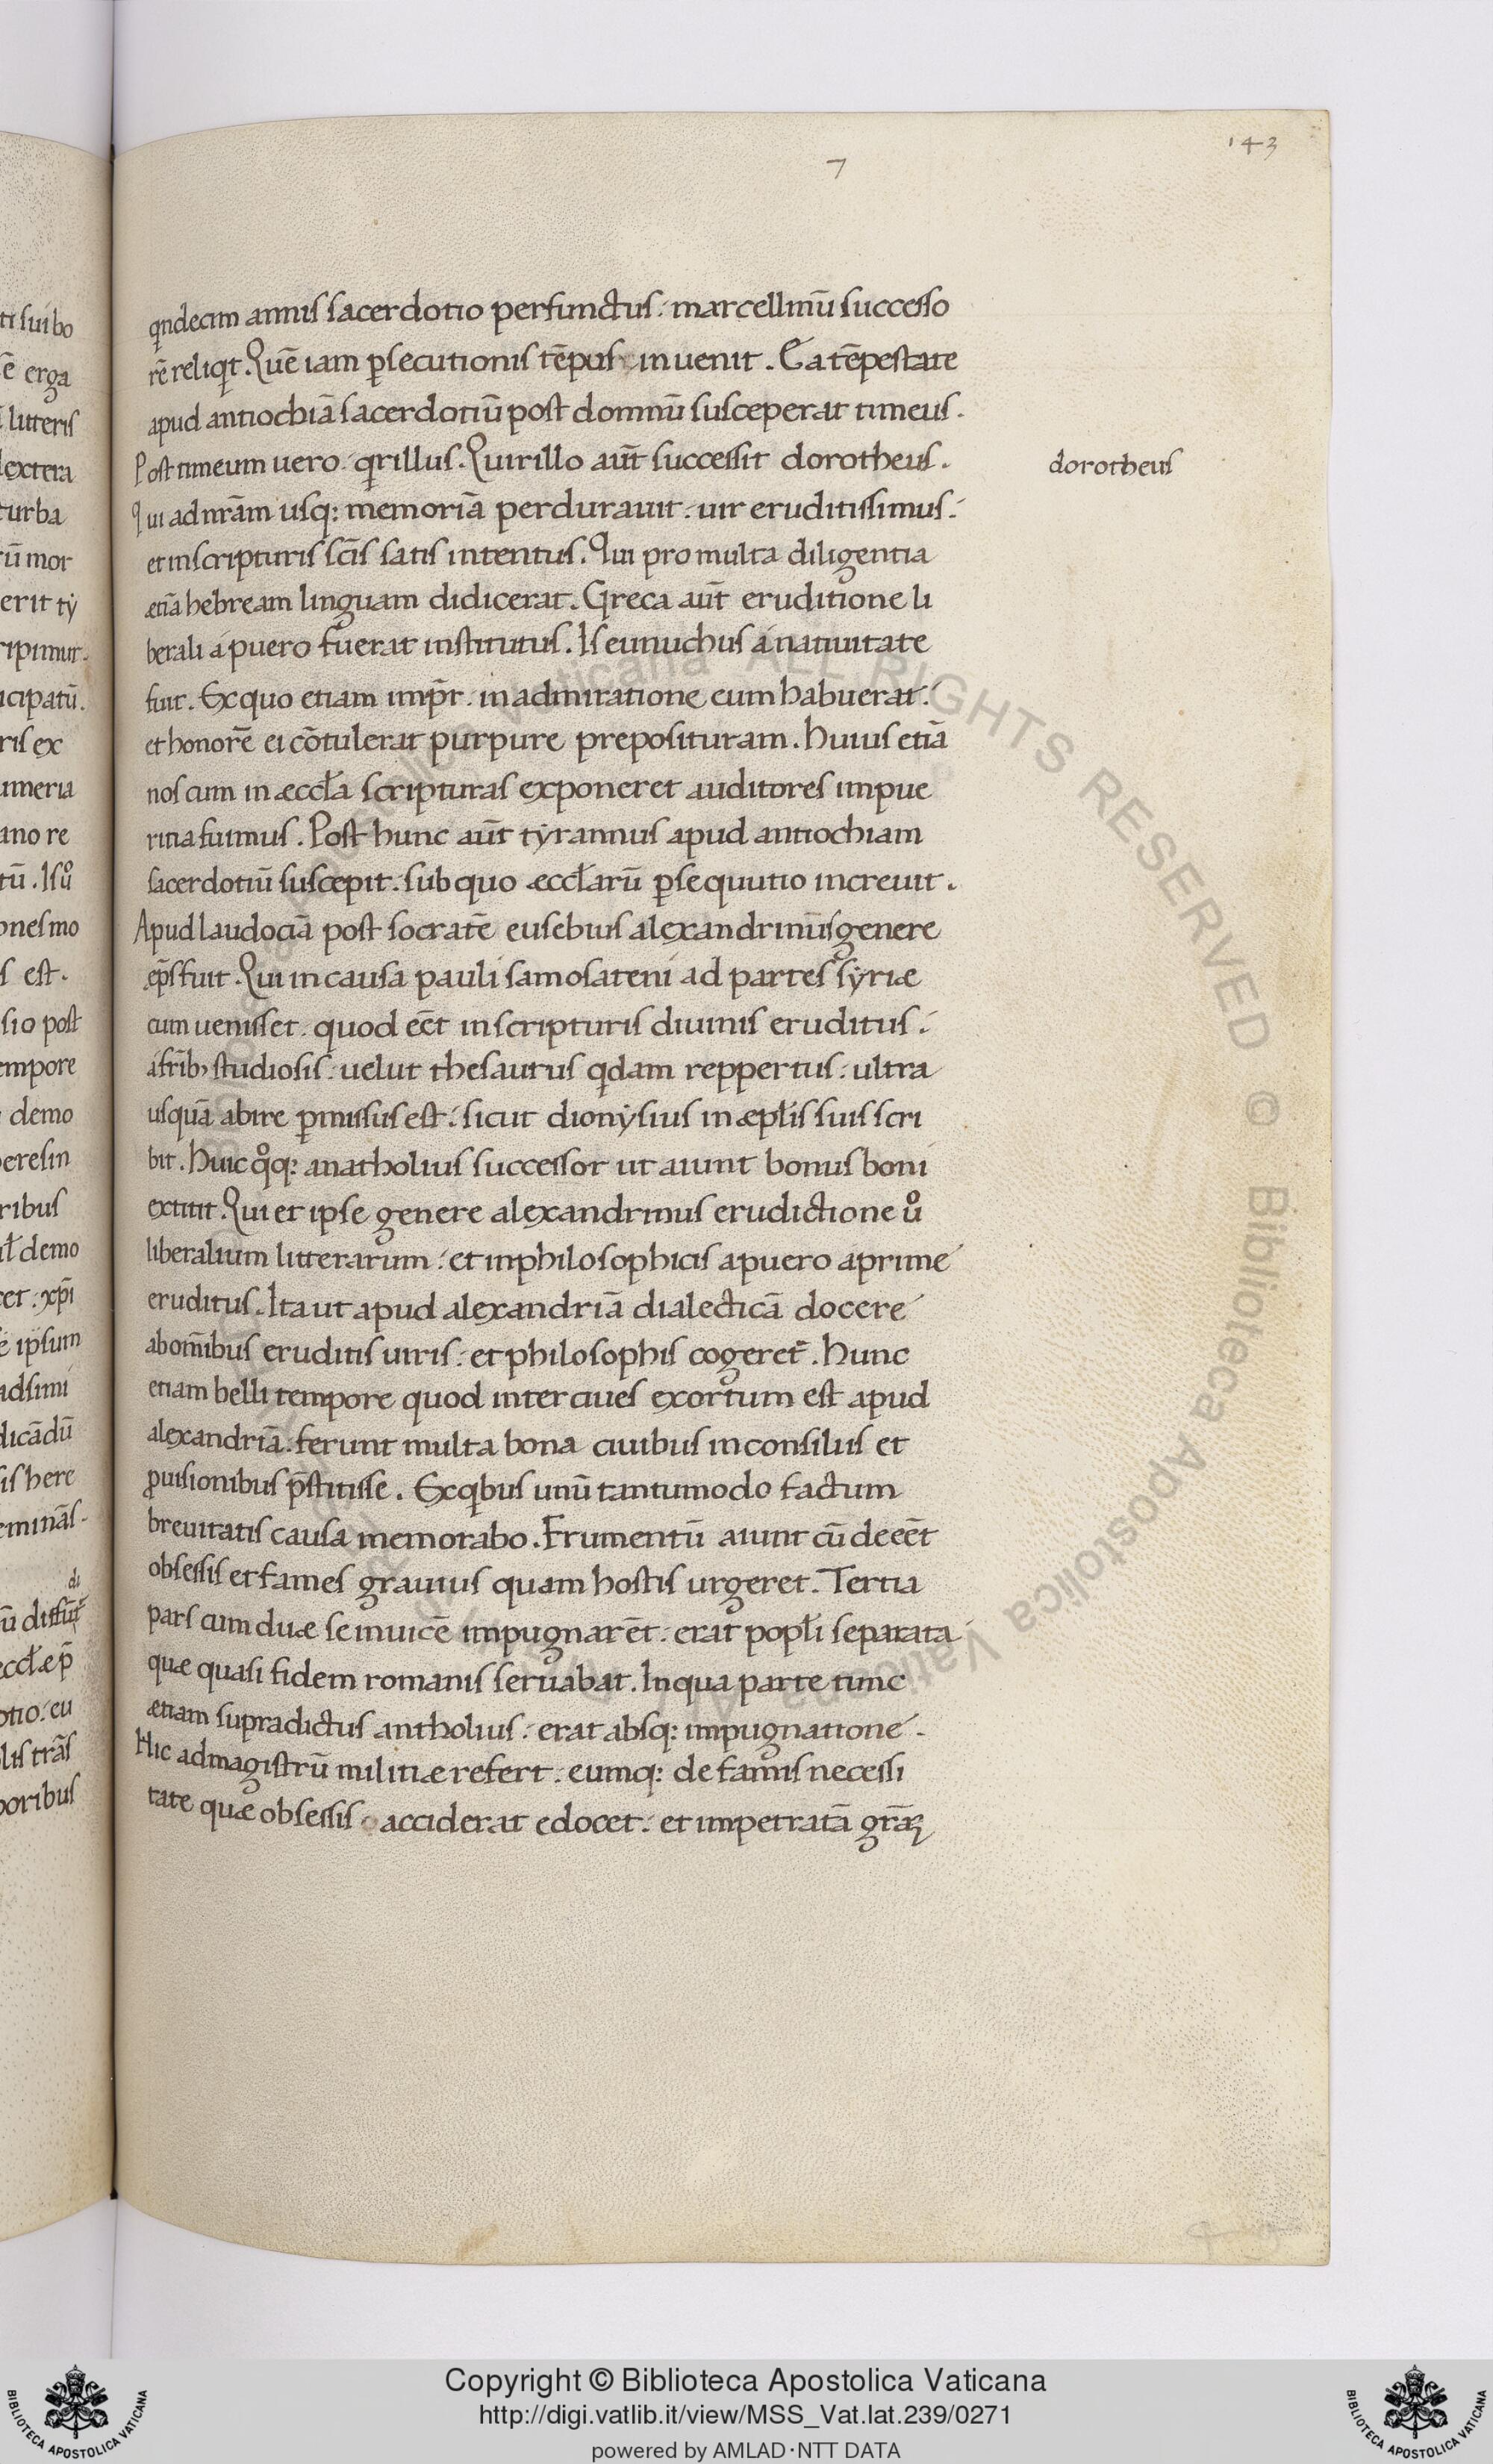 143
7
qndecim annis sacerdotio perfunctus. marcellinū successo
rē reliqt. Quē iam psecutionis tēpus inuenit. Ea tēpestate
apud antiochiā sacerdotiū post domnū susceperat timeus.
Post timeum uero. qrillus. Quirillo aūt successit dorotheus.
dorotheus
Qui ad nrām usq: memoriā perdurauit. uir eruditissimus.
et in scripturis scīs satis intentus. Qui pro multa diligentia
ætiā hebream linguam didicerat. Greca aūt eruditione li
berali a puero fuerat institutus. Is eunuchus a natiuitate
fuit. Ex quo etiam impr̄. in admiratione eum habuerat.
et honorē ei cōtulerat purpure preposituram. Huius etiā
nos cum in æccƚa scripturas exponeret auditores impue
ritia fuimus. Post hunc aūt tyrannus apud antiochiam
sacerdotiū suscepit. sub quo æccƚarū psequutio increuit.
Apud laudociā post socratē eusebius alexandrinus genere
ep̄s fuit. Qui in causa pauli samosateni ad partes syriæ
cum uenisset. quod eēt in scripturis diuinis eruditus.
a frīb; studiosis. uelut thesaurus qdam reppertus. ultra
usquā abire pmissus est. sicut dionysius in æpƚis suis scri
bit. Huic qoq: anatholius successor ut aiunt bonus boni
extitit. Qui et ipse genere alexandrinus erudictione uo
liberalium litterarum. et in philosophicis a puero aprime
eruditus. Ita ut apud alexandriā dialecticā docere
ab om̄ibus eruditis uiris. et philosophis cogeret̄. Hunc
etiam belli tempore quod inter ciues exortum est apud
alexandriā. ferunt multa bona ciuibus in consiliis et
puisionibus p̄stitisse. Ex qbus unū tantumodo factum
breuitatis causa memorabo. Frumentū aiunt cū deeēt
obsessis et fames grauius quam hostis urgeret. Tertia
pars cum duæ se inuicē impugnarēt. erat popƚi separata
quæ quasi fidem romanis seruabat. In qua parte tunc
ætiam supradictus antholius. erat absq: impugnatione.
Hic ad magistrū militiæ refert. eumq: de famis necessi
tate quæ obsessis acciderat edocet. et impetratā grāꝝ
Copyright © Biblioteca Apostolica Vaticana
http://digi.vatlib.it/view/MSS_Vat.lat.239/0271
powered by AMLAD·NTT DATA